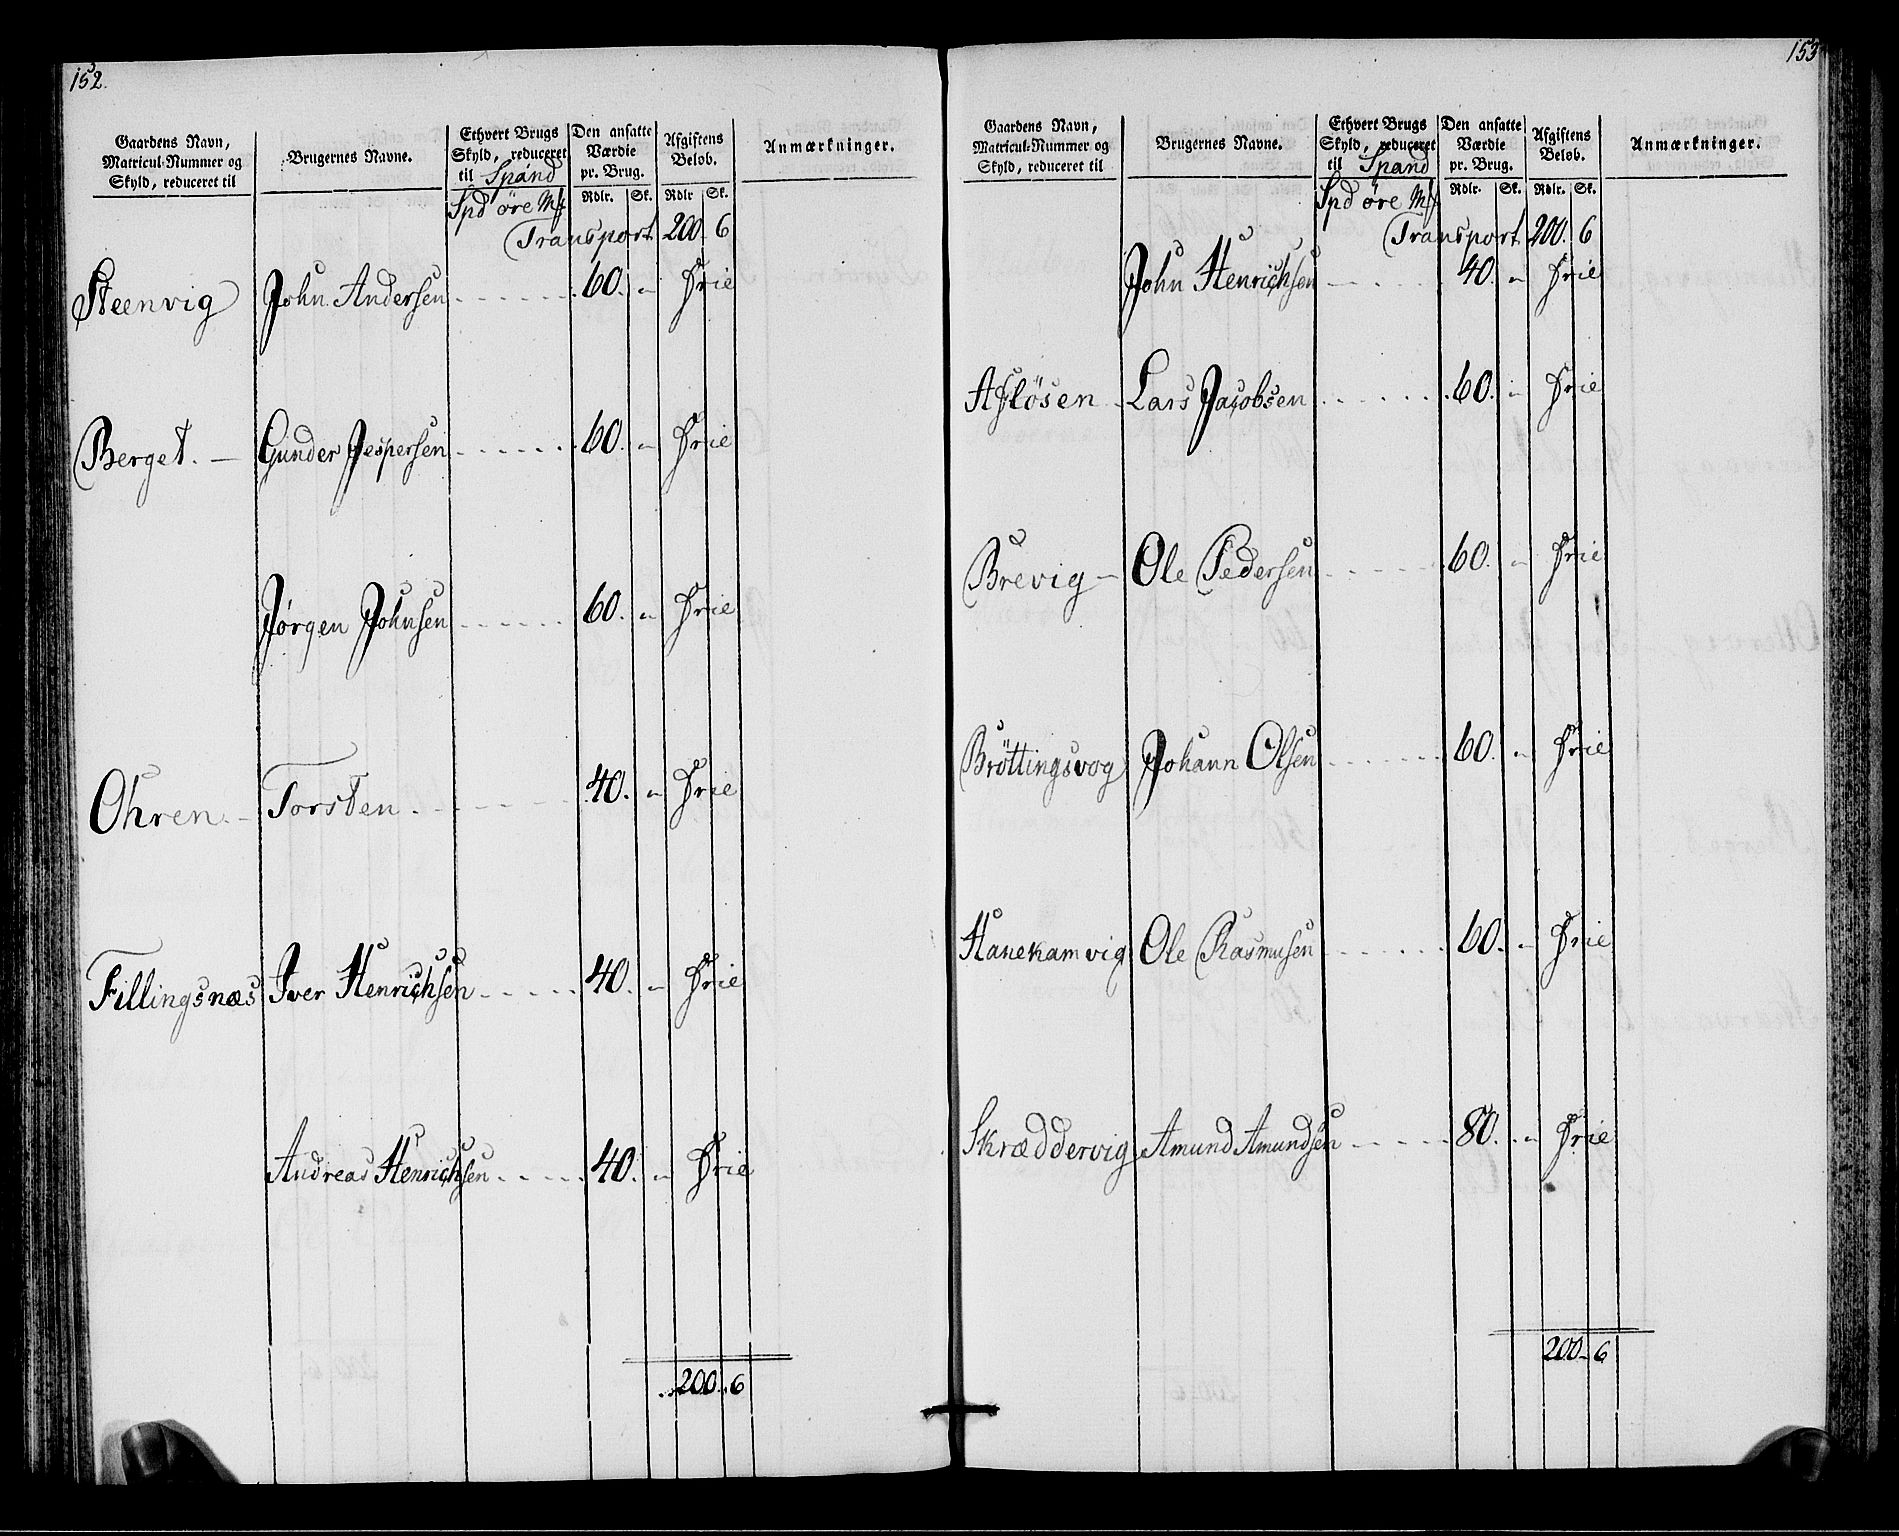 152.
Gaardens Navn, Matricul-Nummer og Skyld, reduceret til
Brugernes Navne.
Ethvert Brugs Skyld, reduceret til Spand
Den ansatte Værdie pr. Brug.
Afgiftens Beløb.
Anmærkninger.
Spd öre Mſ Rdlr. Sk. Rdlr Sk.
Transport 200. 6
Steenvig John Andersen . . . . . . 60. „ Frie
Berget. — Gunder Jespersen . . . . . . 60. „ Frie
Jørgen Johnsen . . . . . . 60. „ Frie
Ohren. — Torsten . . . . . . 40. „ Frie
Fillingsnæs Iver Henrichsen . . . . . 40. „ Frie
Andreas Henrichsen . . . . . 40. „ Frie
200. 6
153
Gaardens Navn, Matricul-Nummer og Skyld, reduceret til
Brugernes Navne.
Ethvert Brugs Skyld, reduceret til Spand
Den ansatte Værdie pr. Brug.
Afgiftens Beløb.
Anmærkninger.
Spd öre Mſ Rdlr. Sk. Rdlr. Sk.
Transport 200. 6
John Henrichsen . . . . . . 40. „ Frie
Aflösen Lars Jacobsen . . . . . . 60. „ Frie
Brevig — Ole Pedersen . . . . . . 60. „ Frie
Bröttingsvog Johann Olsen . . . . . . 60. „ Frie
Hanekamvig Ole Rasmusen . . . . . . 60. „ Frie
Skræddervig Amund Amundsen . . . . . 80. „ Frie
200. 6